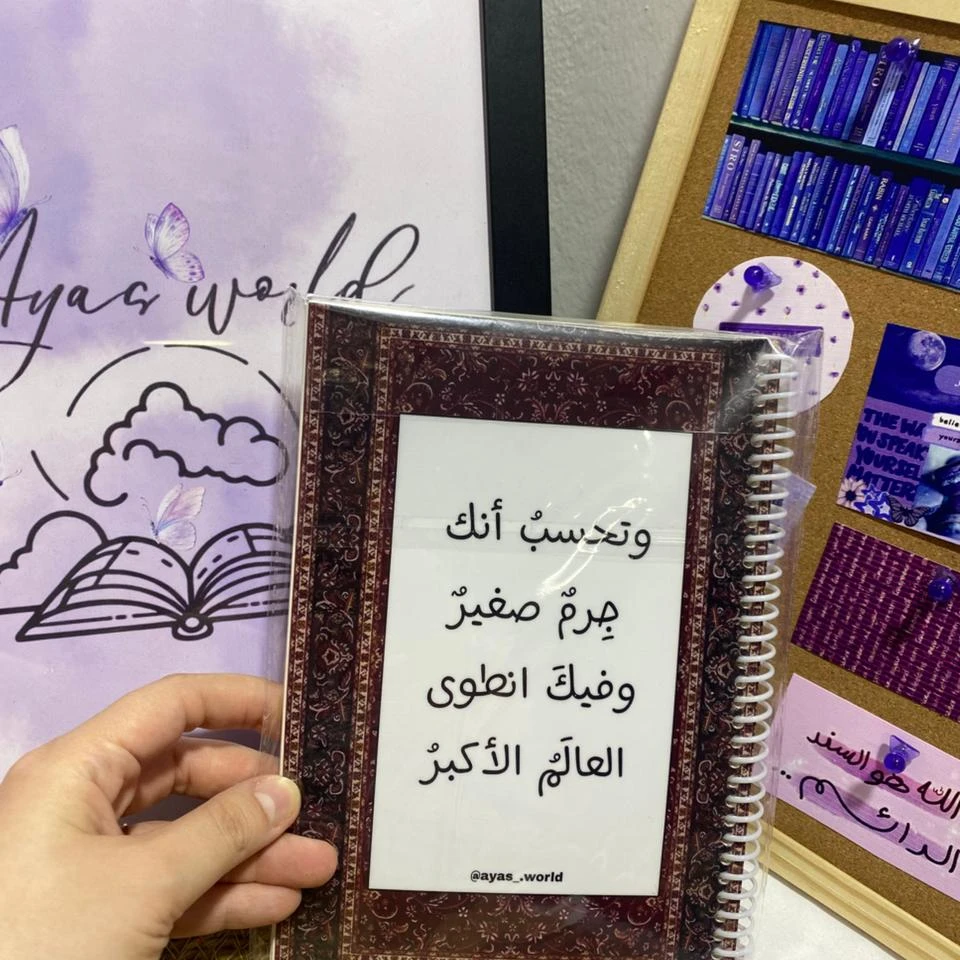 Ayas world
وتحسبُ أنك
جِرمٌ صغيرٌ
وفيكَ انطوى
العالَمُ الأكبرُ
@ayas_.world
SIRO
RABIN
THE WA
SPEAK
YOURSEL
MATTER
الله هو السند
الدائم ..